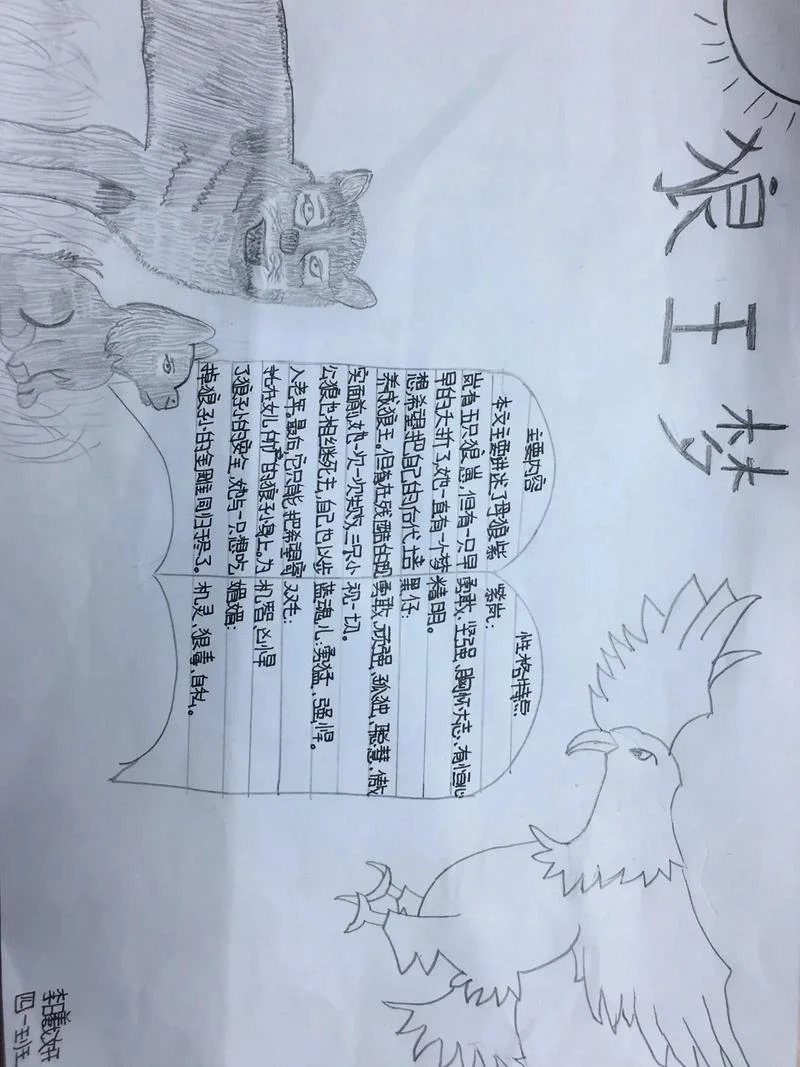 狼王梦
主要内容
本文主要讲述了母狼紫
岚有五只狼崽,但有一只早
早的夭折了,她一直有一个梦
想希望把自己的后代培
养成狼王。但有在残酷的现
实面前,她一次一次失败,三只小
公狼也相继死去,自己也以步
入老年。最后,它只能把希望寄
托在女儿所产的狼孙身上。为
了狼孙的安全,她与一只想吃
掉狼孙的金雕同归于尽了。
性格特点:
紫岚:
勇敢、坚强、胸怀大志、有恒心
精明。
黑仔:
勇敢、顽强、孤独、聪慧、傲
视一切。
蓝魂儿:勇猛、强悍。
双毛:
机智凶悍
媚媚:
机灵、狠毒、自私。
四一班